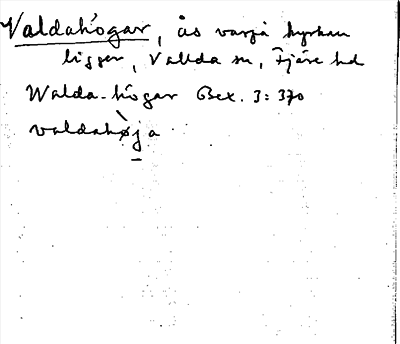 Valdahógar, ås varpå kyrkan
ligger, Vallda sn, Fjäre hd
Walda-högar Bex. 3: 370
valdahø̀ja